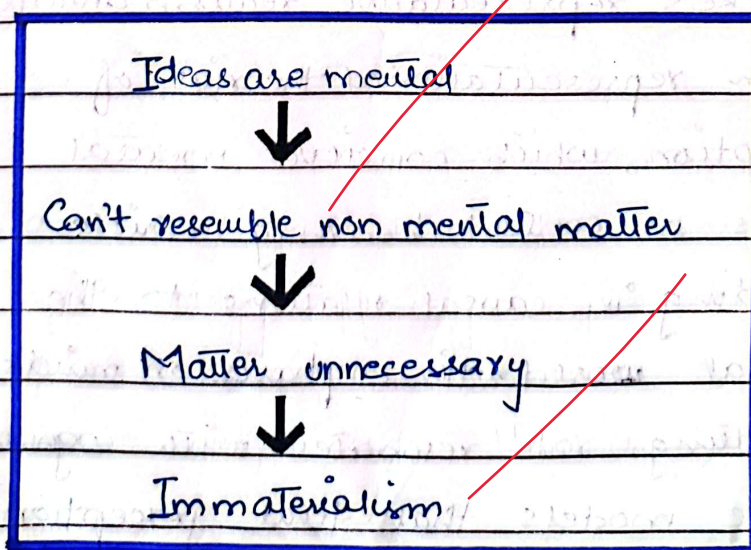 Ideas are mental
Can't resemble non mental matter
Matter unnecessary
Immaterialism